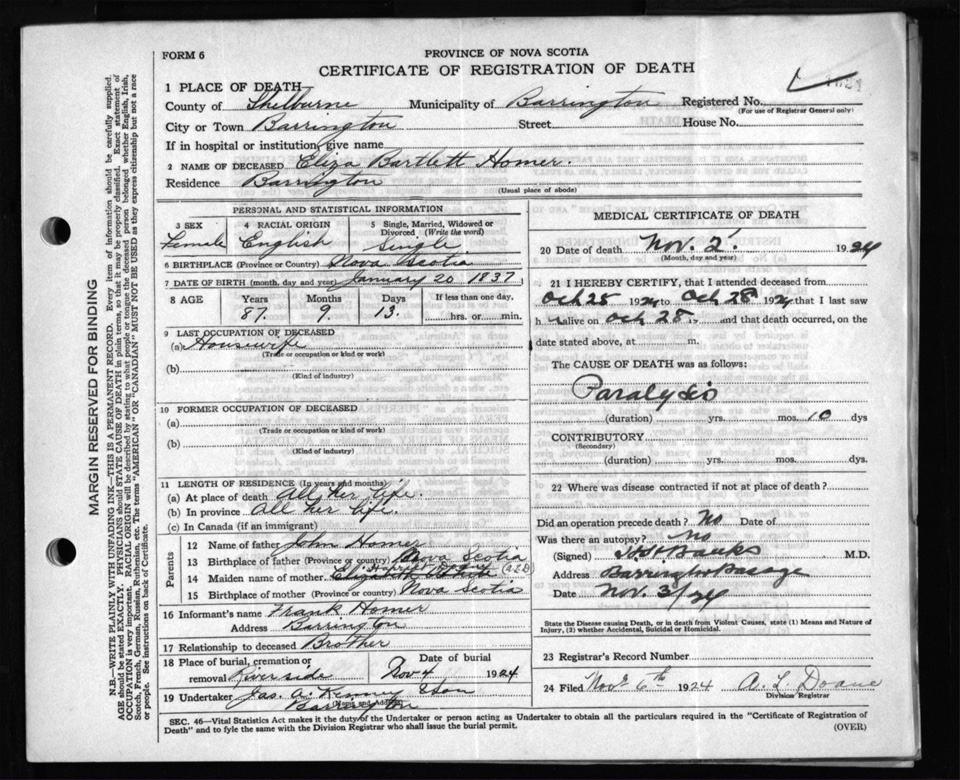 FORM 6
PROVINCE OF NOVA SCOTIA
CERTIFICATE OF REGISTRATION OF DEATH
MARGIN RESERVED FOR BINDING
N.B.—WRITE PLAINLY WITH UNFADING INK—THIS IS A PERMANENT RECORD. Every item of information should be carefully supplied.
AGE should be stated EXACTLY. PHYSICIANS should STATE CAUSE OF DEATH in plain terms, so that it may be properly classified. Exact statement of
OCCUPATION is very important. RACIAL ORIGIN will be described by stating to what people or tongue the deceased person belonged whether English, Irish,
Scotch, French, German, Russian, Ruthenian, etc. The terms "AMERICAN" OR "CANADIAN" MUST NOT BE USED as they express citizenship but not a race
or people. See instructions on back of Certificate.
1 PLACE OF DEATH
County of Shelburne Municipality of Barrington Registered No.
(For use of Registrar General only)
City or Town Barrington Street House No.
If in hospital or institution, give name
2 NAME OF DECEASED Eliza Bartlett Homer.
Residence Barrington
(Usual place of abode)
PERSONAL AND STATISTICAL INFORMATION
3 SEX Female
4 RACIAL ORIGIN English
5 Single, Married, Widowed or Divorced (Write the word) Single
6 BIRTHPLACE (Province or Country) Nova Scotia
7 DATE OF BIRTH (month, day and year) January 20 1837
8 AGE Years Months Days If less than one day,
87. 9. 13. hrs. or min.
9 LAST OCCUPATION OF DECEASED
(a) Housewife
(Trade or occupation or kind or work)
(b)
(Kind of industry)
10 FORMER OCCUPATION OF DECEASED
(a)
(Trade or occupation or kind or work)
(b)
(Kind of industry)
11 LENGTH OF RESIDENCE (In years and months)
(a) At place of death All her life.
(b) In province All her life.
(c) In Canada (if an immigrant)
Parents
12 Name of father John Homer
13 Birthplace of father (Province or country) Nova Scotia
14 Maiden name of mother Elizabeth
15 Birthplace of mother (Province or country) Nova Scotia
16 Informant's name Frank Homer
Address Barrington
17 Relationship to deceased Brother
18 Place of burial, cremation or removal Riverside
Date of burial Nov 4 1924
19 Undertaker Jas. A. Kenney & Son
(Name and Address)
Barrington
MEDICAL CERTIFICATE OF DEATH
20 Date of death Nov. 2. 1924
(Month, day and year)
21 I HEREBY CERTIFY, that I attended deceased from
Oct 25 1924 to Oct 28 1924 that I last saw
h alive on Oct 28 19 and that death occurred, on the
date stated above, at m.
The CAUSE OF DEATH was as follows:
Paralysis
(duration) yrs. mos. 10 dys
CONTRIBUTORY
(Secondary)
(duration) yrs. mos. dys.
22 Where was disease contracted if not at place of death?
Did an operation precede death? No Date of
Was there an autopsy? No
(Signed) Banks M.D.
Address Barrington Passage
Date Nov. 3/24
State the Disease causing Death, or in death from Violent Causes, state (1) Means and Nature of
Injury, (2) whether Accidental, Suicidal or Homicidal.
23 Registrar's Record Number
24 Filed Nov 6th 1924 A. L. Doane
Division Registrar
SEC. 46—Vital Statistics Act makes it the duty of the Undertaker or person acting as Undertaker to obtain all the particulars required in the "Certificate of Registration of
Death" and to fyle the same with the Division Registrar who shall issue the burial permit.
(OVER)